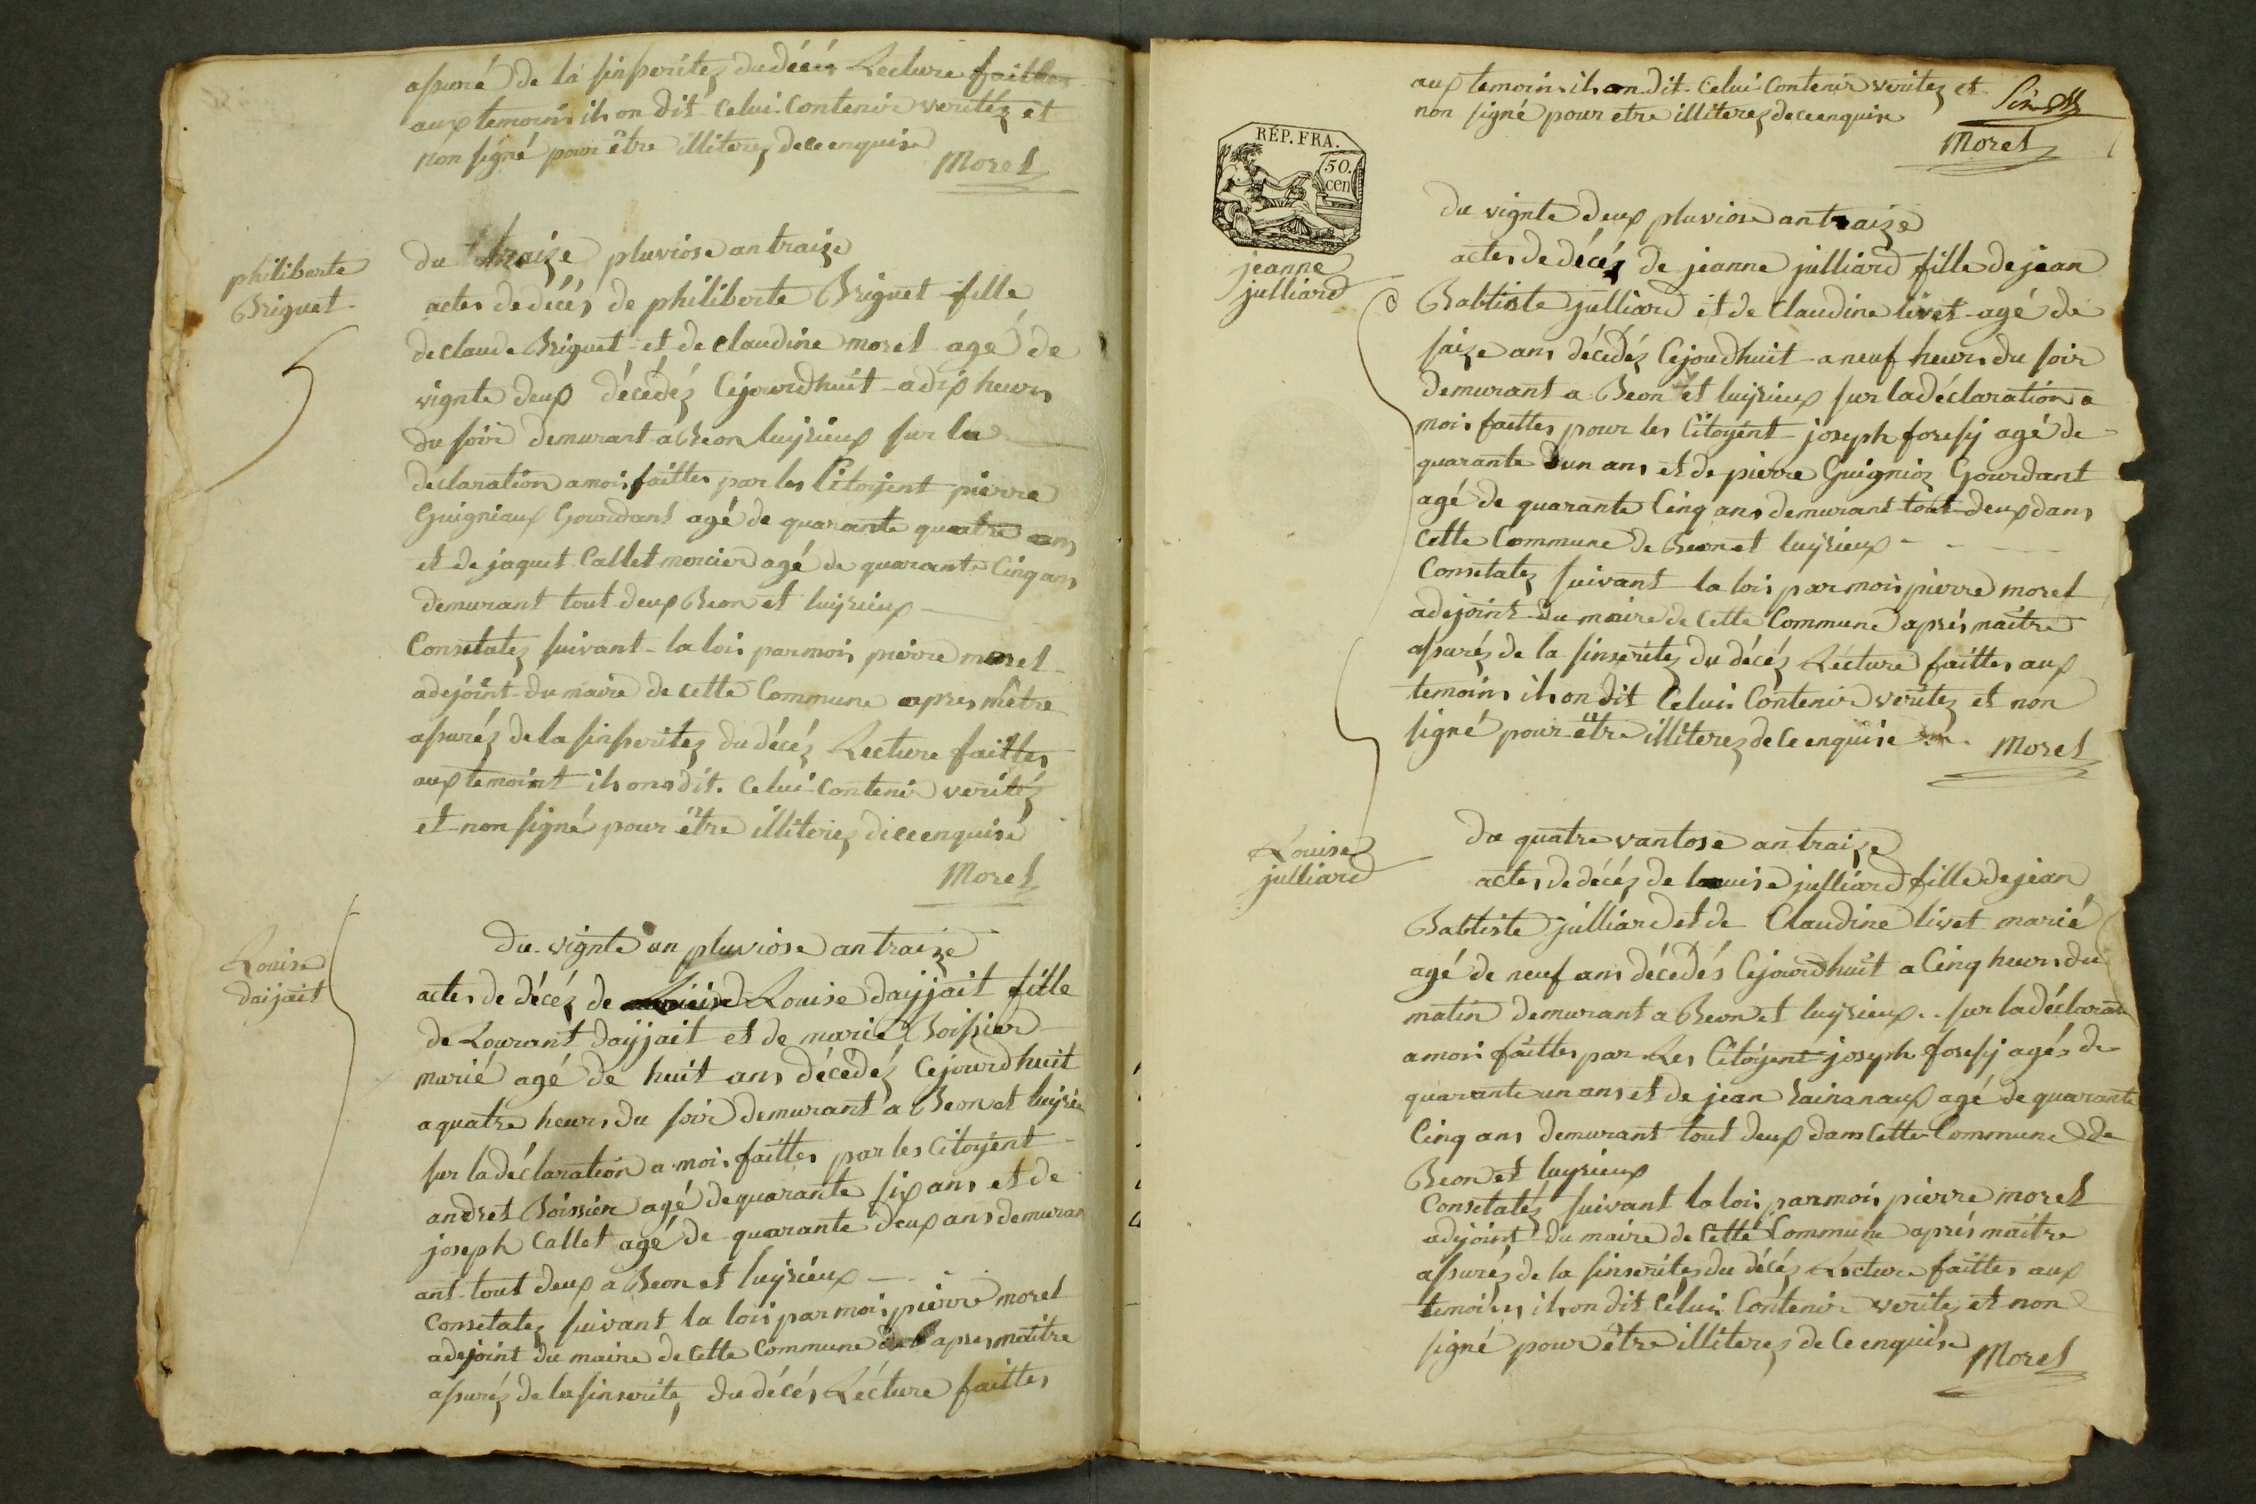 assuré de la sinserité du décés Lecture faittes
aux temoins ils on dit celui contenir veritéz et
non signé pour être illiterez de ce enquise
Morel
philiberte
Briguet
du traize pluviose an traize
actes de décés de philiberte Briguet fille
de claude Briguet et de claudine morel agé de
vignte deux décédéz Cejourdhuit a dix heurs
du soir demurant a Beon luyrieux sur la
declaration a moi faittes par les Citoyent pierre
Guigniaux Gourdant agé de quarante quatre ans
et de jaquet Callet mercier agé de quarante Cinq ans
demurant tout deux Beon et luyrieux
Consetatéz suivant la lois par mois pierre morel
adejoint du maire de cette Commune apres mêtre
assuréz de la sinseritez du décéz Lecture faittes
aux temoint ils on dit celui contenir veritéz
et non signé pour être illiterez de ce enquise
Morel
Louise
daijait
Du vignte un pluviose an traize
actes de décéz de Louise dayjait fille
de Lourant dayjait et de marie Boissier
marié agé de huit ans décédéz Cejourdhuit
a quatre heurs du soir demurant a Beon et luyrieu
sur la déclaration a mois faittes par les Citoyent
andret Boissier agé de quarante six ans et de
joseph Callet agé de quarante deux ans demuran
ant tout deux a Beon et luyrieux
Consetatez suivant la lois par mois pierre morel
adejoint du maire de cette Commune apres maitre
assuréz de la sinserite du décés Lécture faittes
aux temoins ils on dit celui contenir veritez et
non signé pour etre illiterez de ce enquise
Morel
RÉP. FRA.
50.
cen
jeanne
julliard
du vignte deux pluviose an traize
actes de décéz de jeanne julliard fille de jean
Babtiste julliard et de Claudine livet agé de
saize ans décédéz Cejourdhuit a neuf heurs du soir
demurant a Beon et luyrieux sur la déclaration a
mois faittes pour les Citoyent joseph foresy agé de
quarante d'un ans et de pierre Guignioz Gourdant
agé de quarante Cinq ans demurant tout deux dans
cette Commune de Beon et luyrieux
Consetatez suivant la lois par mois pierre morel
adejoint du maire de cette Commune aprés maitre
assuréz de la sinseritez du décéz Lécture faittes aux
temoins ils on dit Celui Contenir veritez et non
signé pour être illiterez de ce enquise
Morel
Louise
julliard
du quatre vantose an traize
actes de décéz de louise julliard fille de jean
Babtiste julliard et de Claudine livet marié
agé de neuf ans décédés Cejourdhuit a Cinq heurs du
matin demurant a Beon et luyrieux sur la déclaration
a mois faittes par Les Citoyent joseph foresy agés de
quarante un ans et de jean agé de quarante
Cinq ans demurant tout deux dans Cette Commune de
Beon et luyrieux
Consetatéz suivant la lois par mois pierre morel
adejoint du maire de Cette Commune aprés maitre
assuréz de la sinseritez du décéz Lécture faittes aux
temoins ils on dit Célui Contenir verite et non
signé pour être illiterez de ce enquise
Morel